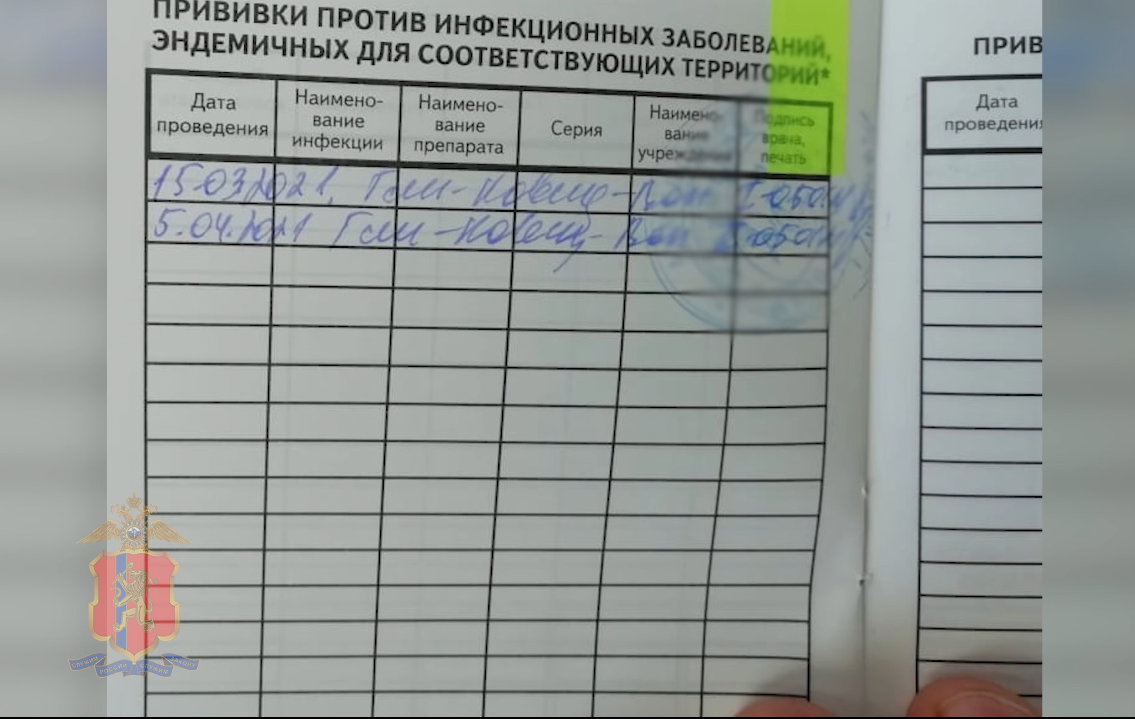 ПРИВИВКИ ПРОТИВ ИНФЕКЦИОННЫХ ЗАБОЛЕВАНИЙ,
ЭНДЕМИЧНЫХ ДЛЯ СООТВЕТСТВУЮЩИХ ТЕРРИТОРИЙ*
Дата проведения
Наимено-
вание
инфекции
Наимено-
вание
препарата
Серия
Наимено-
вание
учреждения
Подпись
врача,
печать
15.03.2021. Гам-Ковид-Вак
5.04.2021 Гам-Ковид-Вак
ПРИВ
Дата
проведения